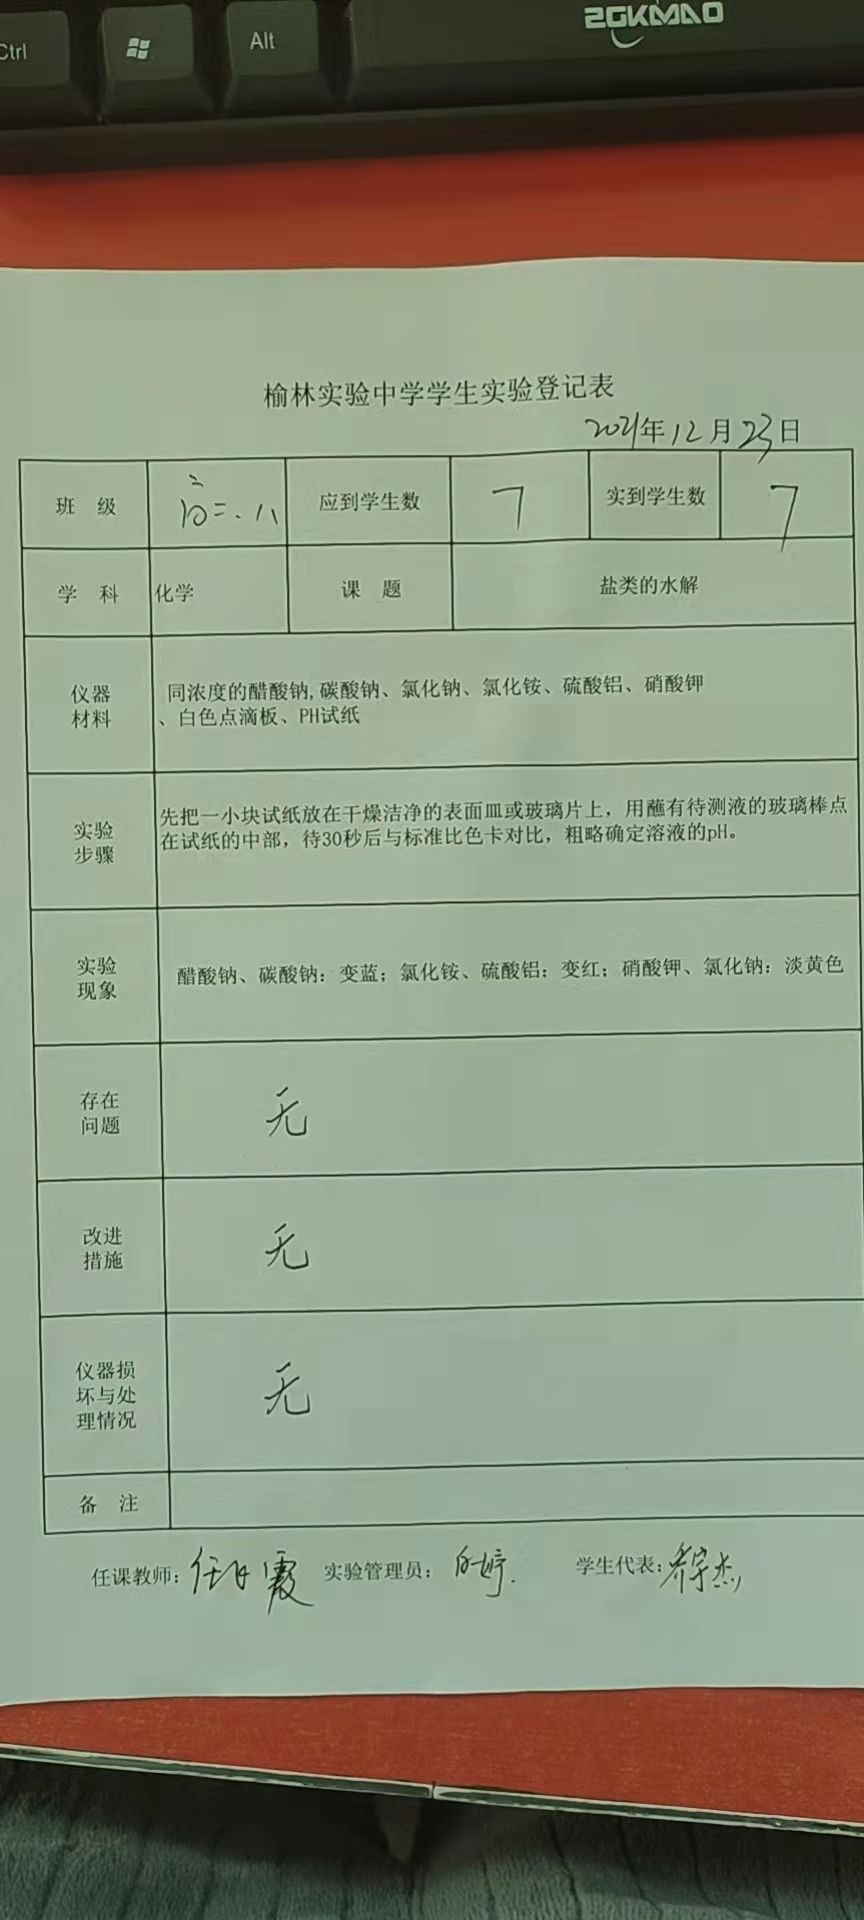 Ctrl
Alt
2GKMAO
榆林实验中学学生实验登记表
2021年12月23日
班 级 高二.八 应到学生数 7 实到学生数 7
学 科 化学 课 题 盐类的水解
仪器材料
同浓度的醋酸钠,碳酸钠、氯化钠、氯化铵、硫酸铝、硝酸钾
、白色点滴板、PH试纸
实验步骤
先把一小块试纸放在干燥洁净的表面皿或玻璃片上，用蘸有待测液的玻璃棒点
在试纸的中部，待30秒后与标准比色卡对比，粗略确定溶液的pH。
实验现象
醋酸钠、碳酸钠：变蓝；氯化铵、硫酸铝：变红；硝酸钾、氯化钠：淡黄色
存在问题
无
改进措施
无
仪器损坏与处理情况
无
备 注
任课教师: 实验管理员: 学生代表: